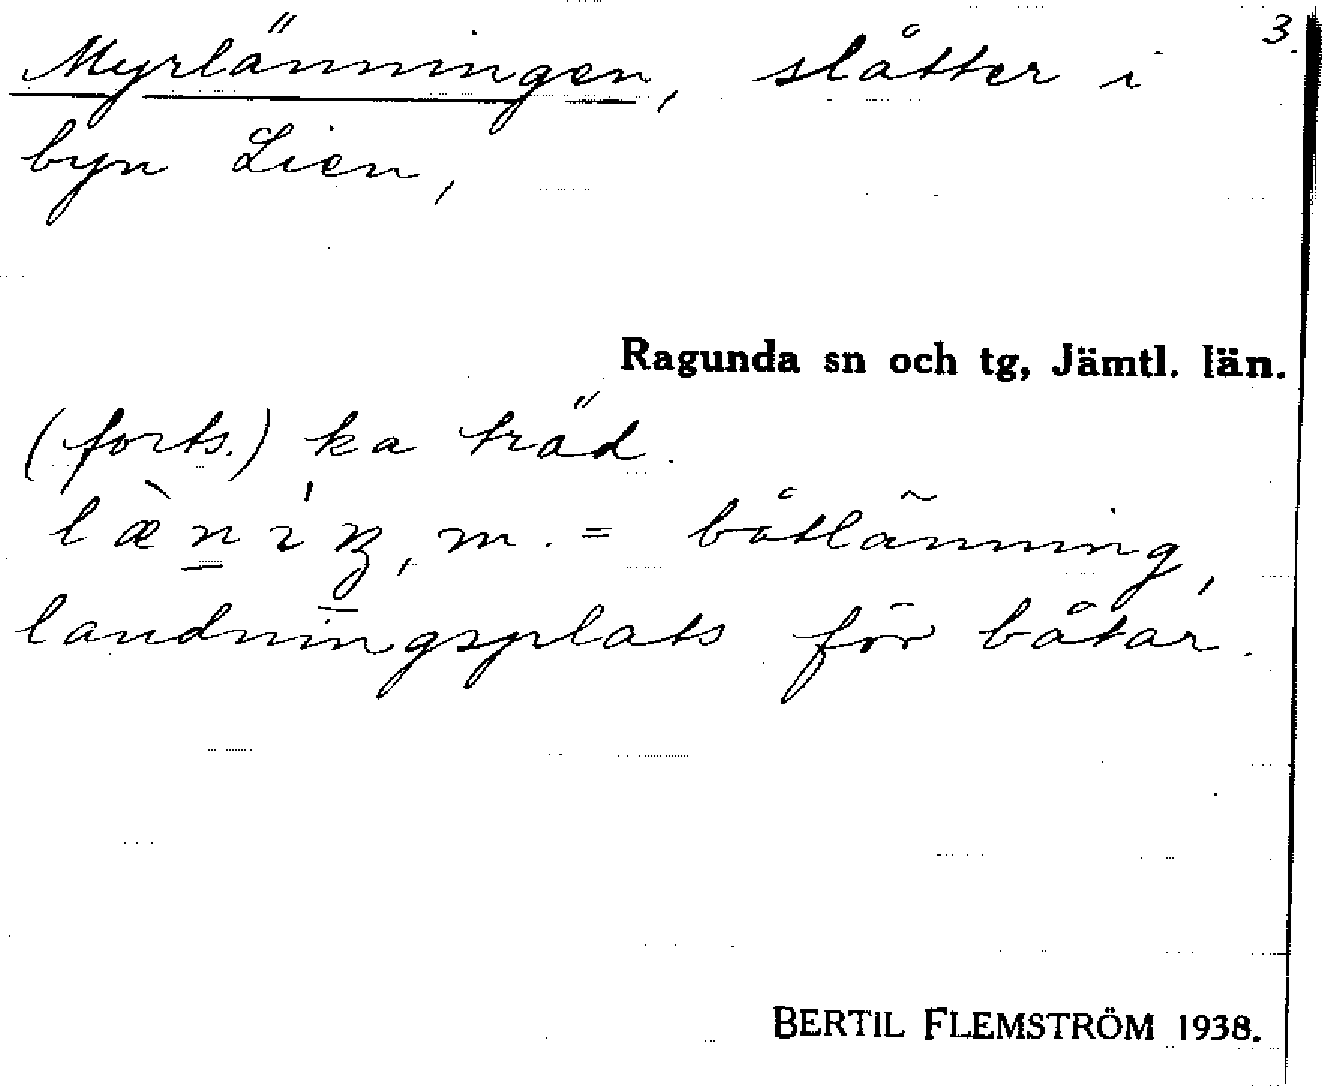 3.
Myrlänningen, slåtter i
byn Lien,
Ragunda sn och tg, Jämtl. län.
(forts.) ka träd.
m. = båtlänning,
landningsplats för båtar.
BERTIL FLEMSTRÖM 1938.